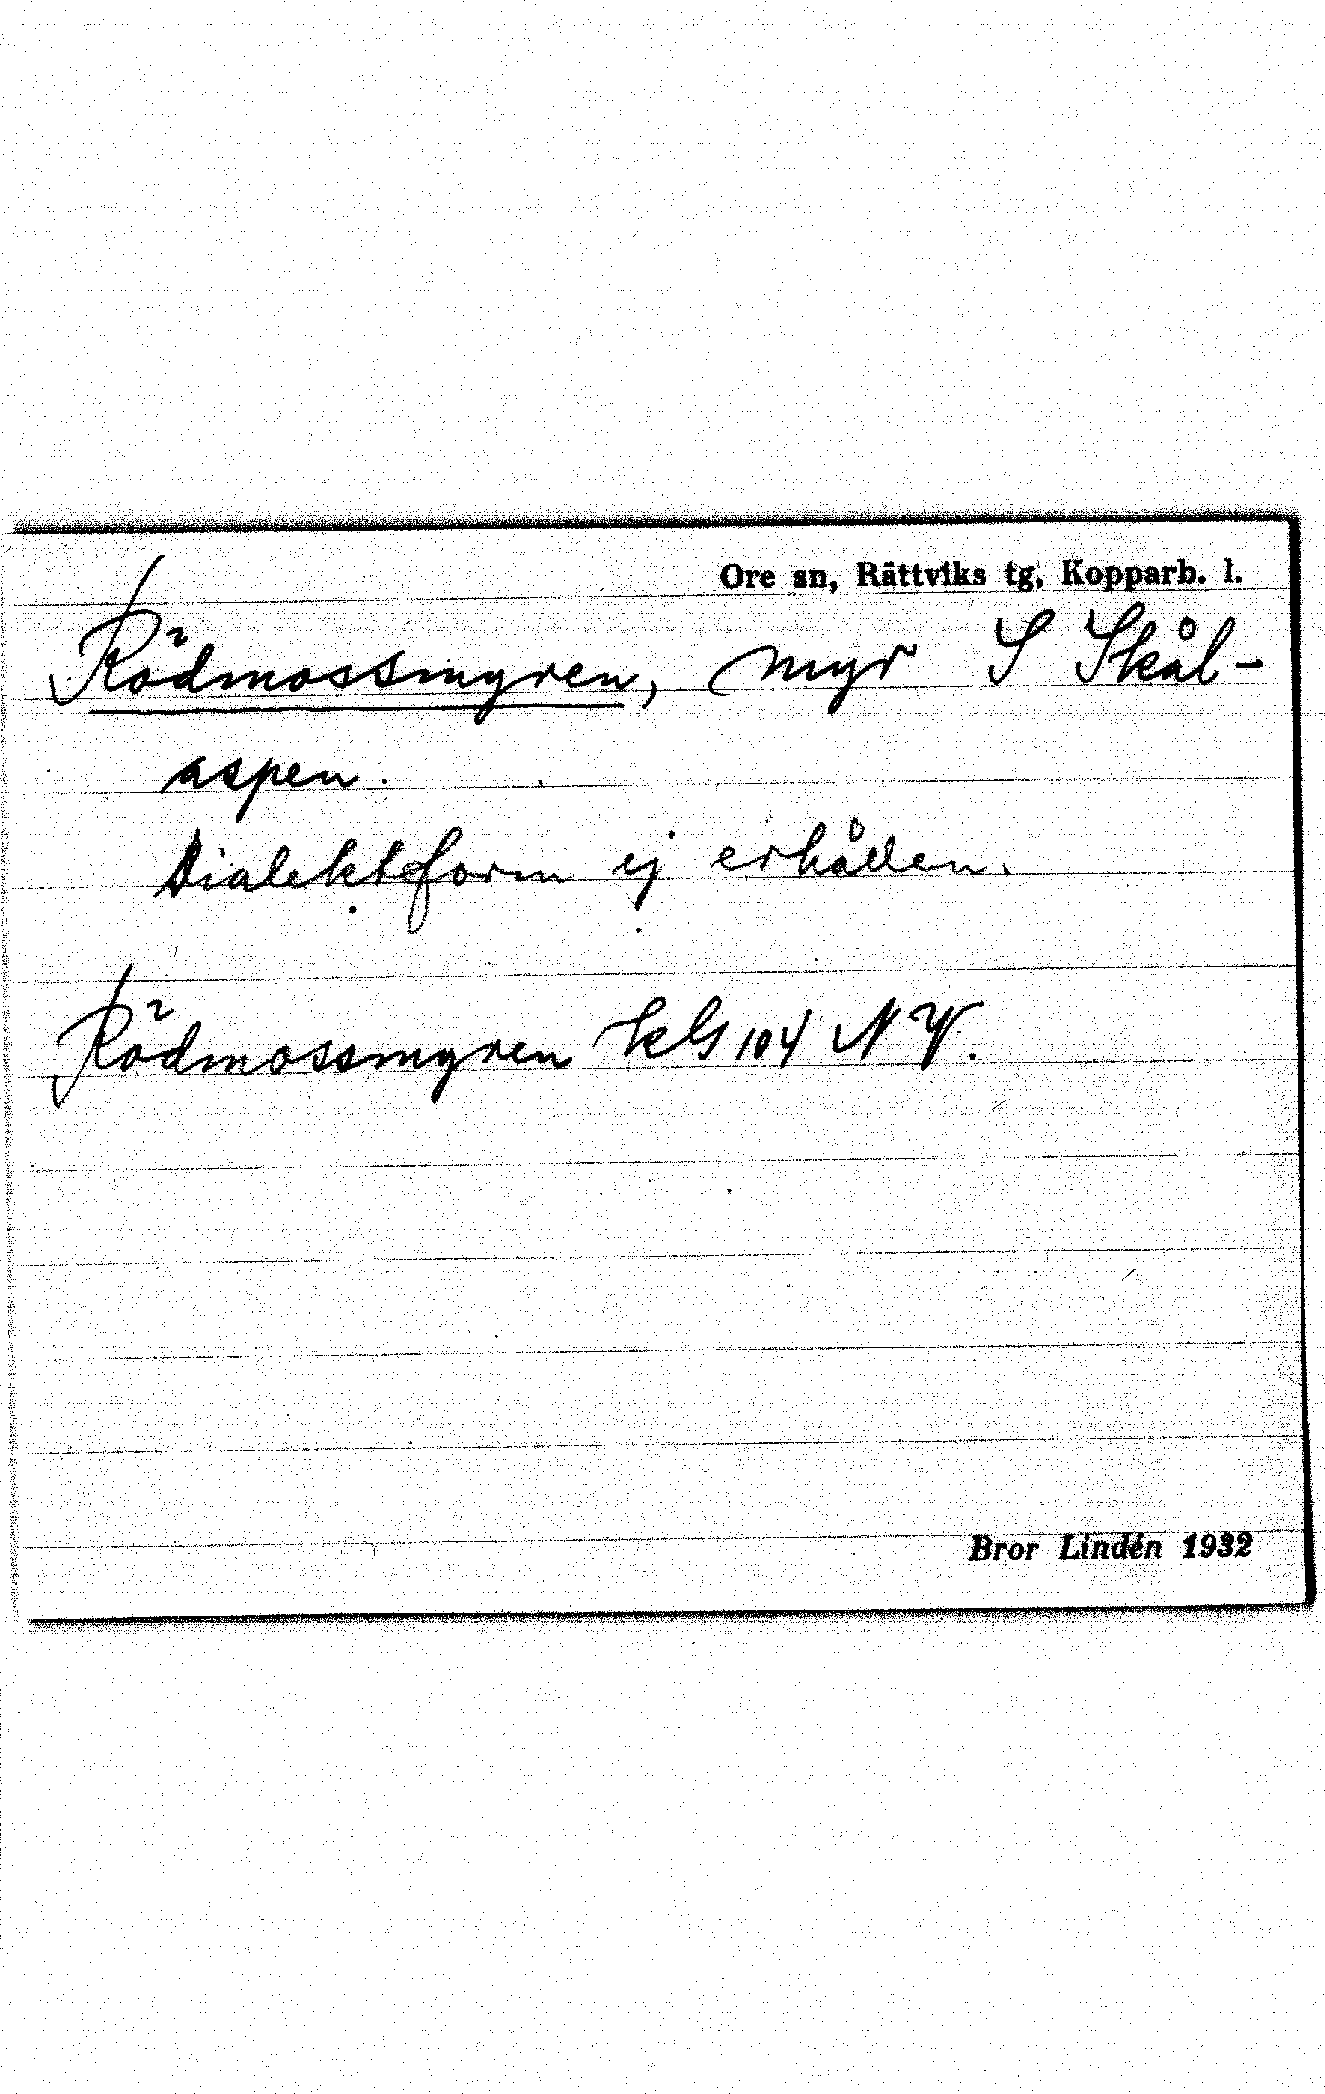 Ore sn, Rättviks tg, Kopparb. l.
Rödmossmyren, myr S Skål-
aspen.
Dialektform ej erhållen.
Rödmossmyren kbl 104 NV.
Bror Lindén 1932